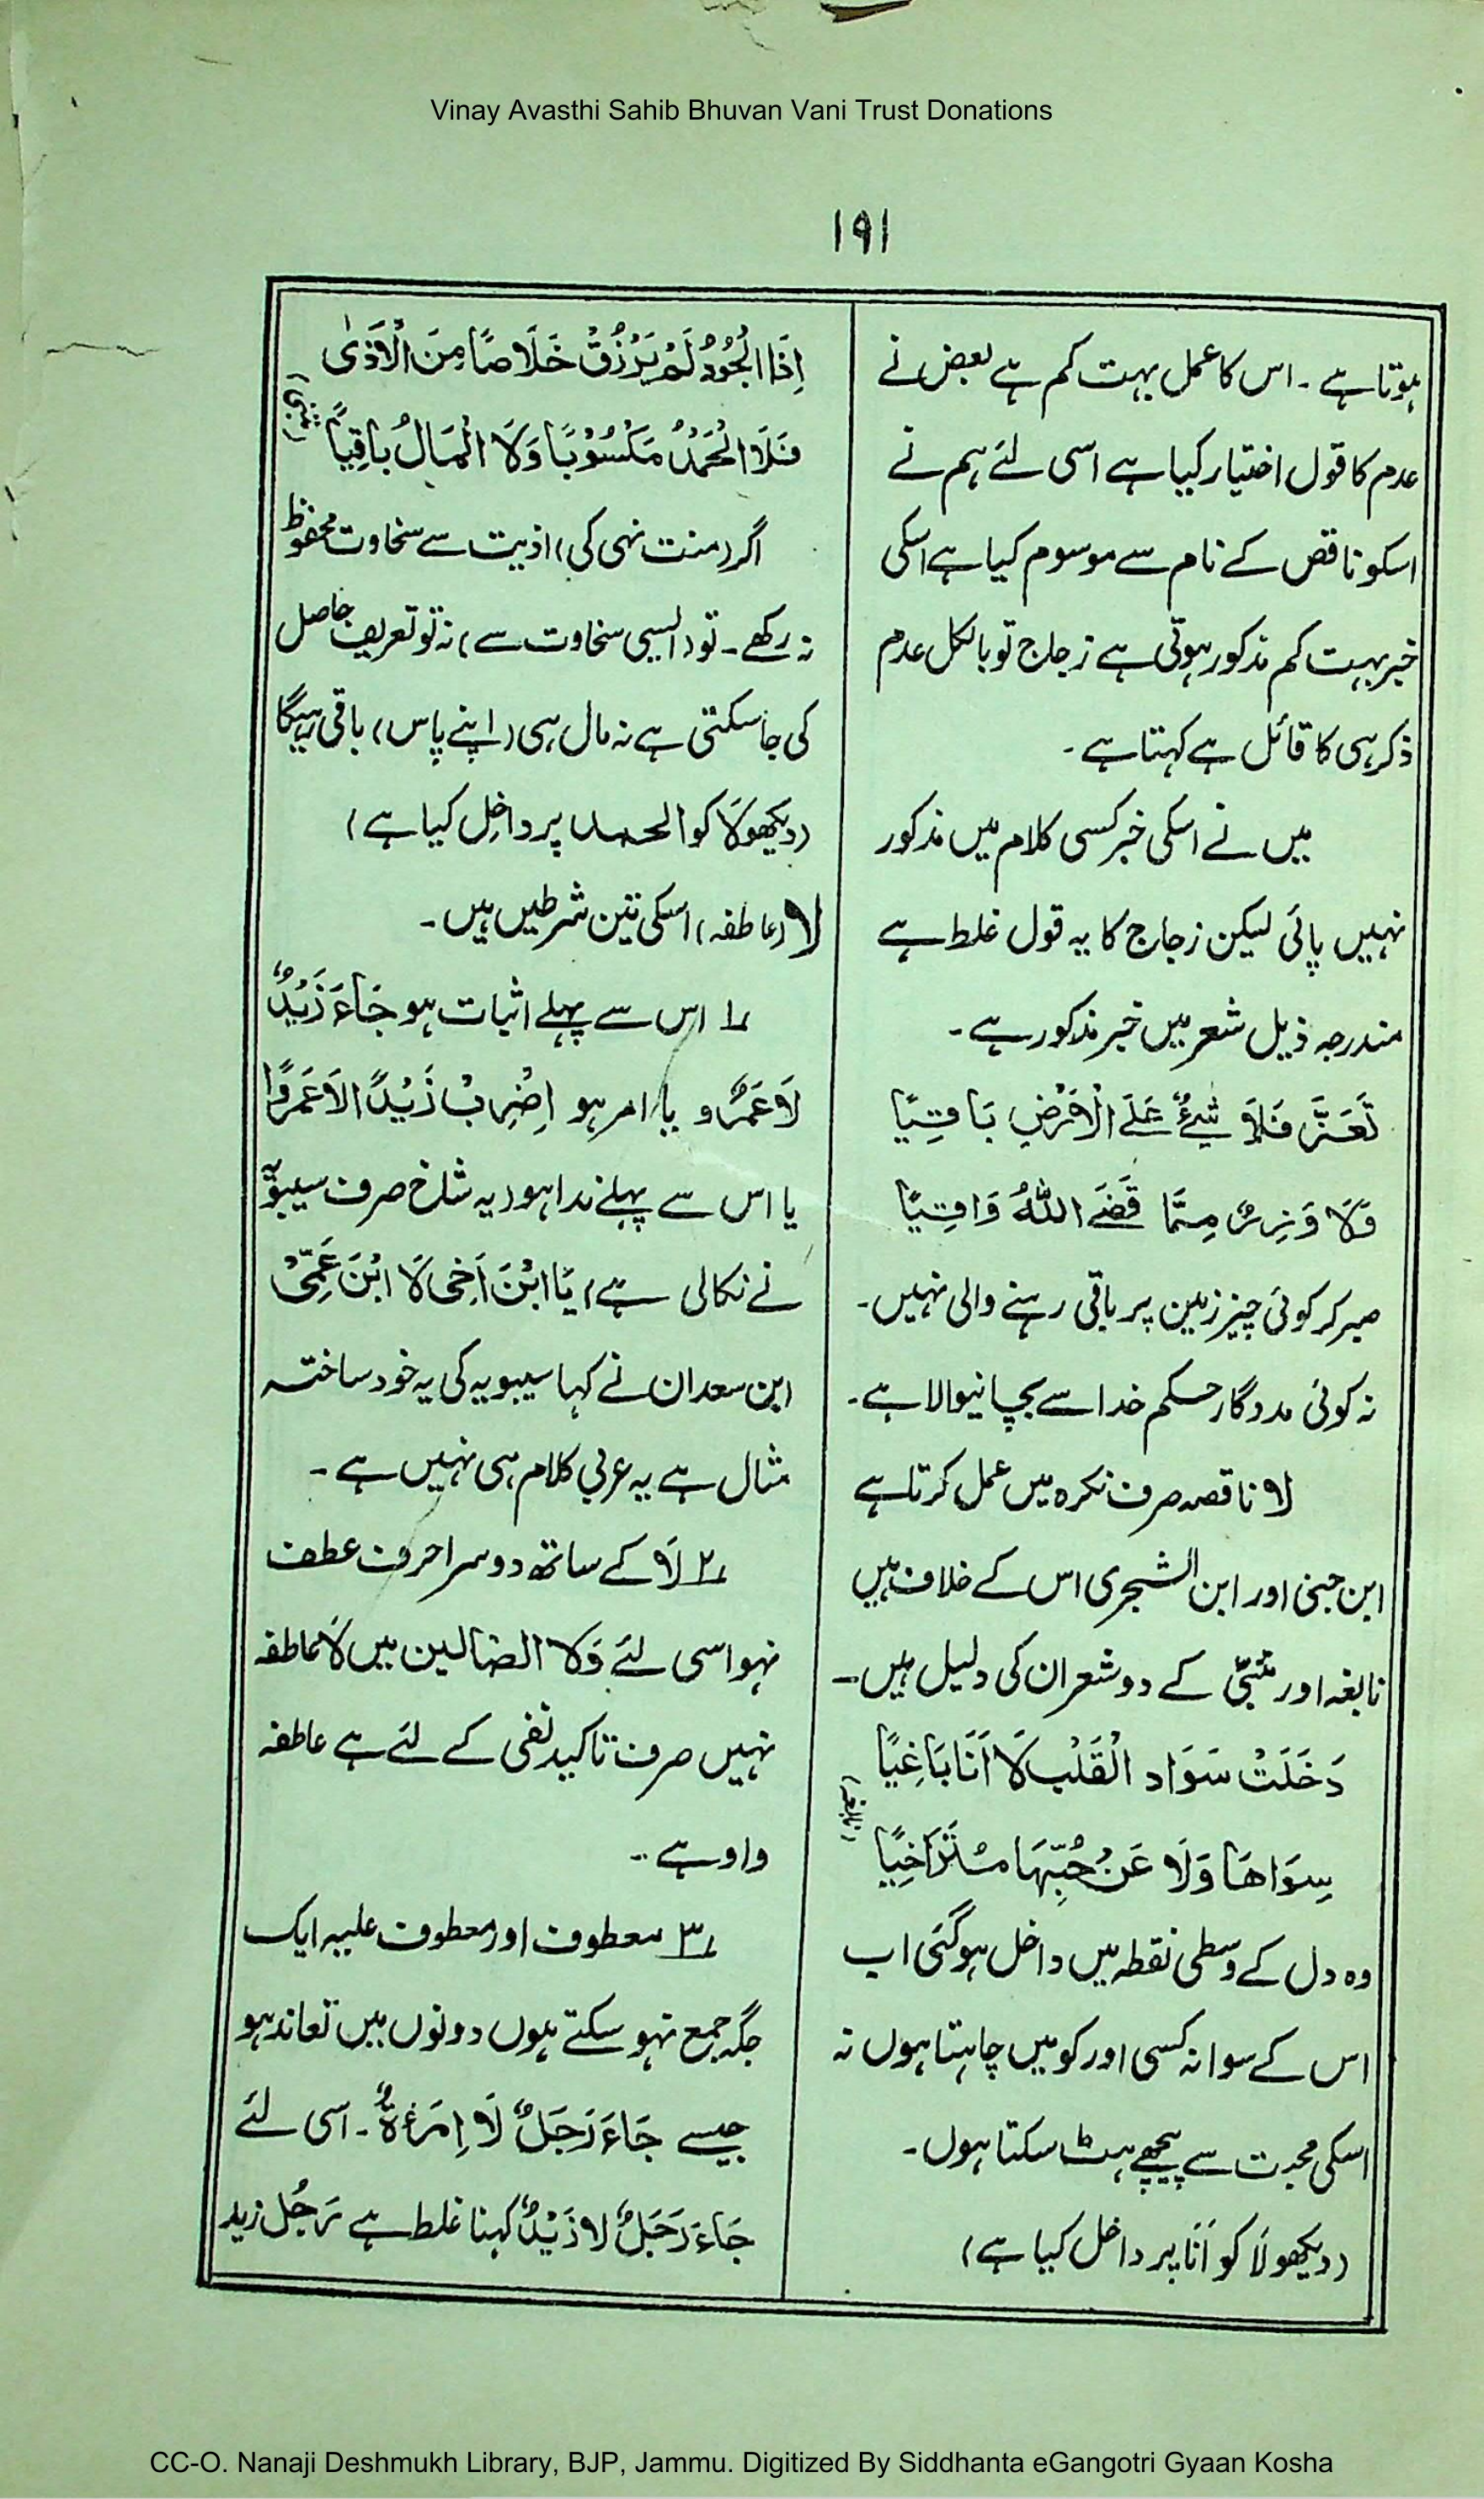 Vinay Avasthi Sahib Bhuvan Vani Trust Donations
۱۹۱
ہوتا ہے ۔ اس کا عمل بہت کم ہے بعض نے
عدم کا قول اختیار کیا ہے اسی لئے ہم نے
اسکو ناقص کے نام سے موسوم کیا ہے اسکی
خبر بہت کم مذکور ہوتی ہے زجاج تو بالکل عدم
ذکر ہی کا قائل ہے کہتا ہے ۔
میں نے اسکی خبر کسی کلام میں مذکور
نہیں پائی لیکن زجاج کا یہ قول غلط ہے
مندرجہ ذیل شعر میں خبر مذکور ہے ۔
تَعَزَّ فَلَا شَيْءٌ عَلَى الْاَرْضِ بَاقِيًا
وَلَا وَزِرٌ مِمَّا قَضَى اللهُ وَاقِيًا
صبر کر کوئی چیز زمین پر باقی رہنے والی نہیں ۔
نہ کوئی مددگار حکم خدا سے بچانیوالا ہے ۔
لا ناقصہ صرف نکرہ میں عمل کرتا ہے
ابن جنی اور ابن الشجری اس کے خلاف ہیں
نابغہ اور متنبّی کے دو شعر ان کی دلیل ہیں ۔
دَخَلَتْ سَوَادَ الْقَلْبِ لَا اَنَا بَاغِيًا
سِوَاهَا وَلَا عَنْ حُبِّهَا مُتَرَاخِيًا (نابغہ)
وہ دل کے وسطی نقطہ میں داخل ہوگئی اب
اس کے سوا نہ کسی اور کو میں چاہتا ہوں نہ
اسکی محبت سے پیچھے ہٹ سکتا ہوں ۔
(دیکھو لَا کو اَنَا پر داخل کیا ہے)
اِذَا الْجُوْدُ لَمْ يُرْزَقْ خَلَاصًا مِنَ الْاَذٰى
فَلَا الْحَمْدُ مَكْسُوْبًا وَلَا الْمَالُ بَاقِيًا (متنبی)
اگر (منت نہی کی) اذیت سے سخاوت محفوظ
نہ رکھے ۔ تو (ایسی سخاوت سے) نہ تو تعریف حاصل
کی جا سکتی ہے نہ مال ہی (اپنے پاس) باقی رہیگا
(دیکھو لَا کو الحمد پر داخل کیا ہے)
لا (عاطفہ) اسکی تین شرطیں ہیں ۔
۱؎ اس سے پہلے اثبات ہو جَاءَ زَيْدٌ
لَا عَمْرٌو یا امر ہو اِضْرِبْ زَيْدًا لَا عَمْرًوا
یا اس سے پہلے ندا ہو (یہ شاخ صرف سیبویہ
نے نکالی ہے) يَا ابْنَ اَخِى لَا ابْنَ عَمِّىْ
ابن سعدان نے کہا سیبویہ کی یہ خود ساختہ
مثال ہے یہ عربی کلام ہی نہیں ہے ۔
۲؎ لَا کے ساتھ دوسرا حرف عطف
نہو اسی لئے وَلا الضالین میں لا عاطفہ
نہیں صرف تاکید نفی کے لئے ہے عاطفہ
واو ہے ۔
۳؎ معطوف اور معطوف علیہ ایک
جگہ جمع نہو سکتے ہوں دونوں میں تعاند ہو
جیسے جَاءَ رَجُلٌ لَا اِمْرَءَةٌ ۔ اسی لئے
جَاءَ رَجُلٌ لا زَيْدٌ کہنا غلط ہے رَجُل زید
CC-O. Nanaji Deshmukh Library, BJP, Jammu. Digitized By Siddhanta eGangotri Gyaan Kosha